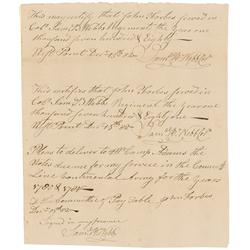 This may certify that John Forbes served in
Colo. Saml. B. Webbs Regiment the year one
thousand seven hundred & Eighty
West Point Decr. 15th 82
Saml. B. Webb Col.
This certifies that John Forbes served in
Colo. Saml. B. Webbs Regiment the year one
thousand seven hundred & Eighty one
West Point Decr. 15th 82
Saml. B. Webb Col.
Please to deliver to Mr. Camp the
Notes due me for my service in the Connectt.
Line Continental Army for the Years
1780 & 1781
To the Committee Pay Table John Forbes
Decr. 15th 82
Signd in presence
Saml. B. Webb